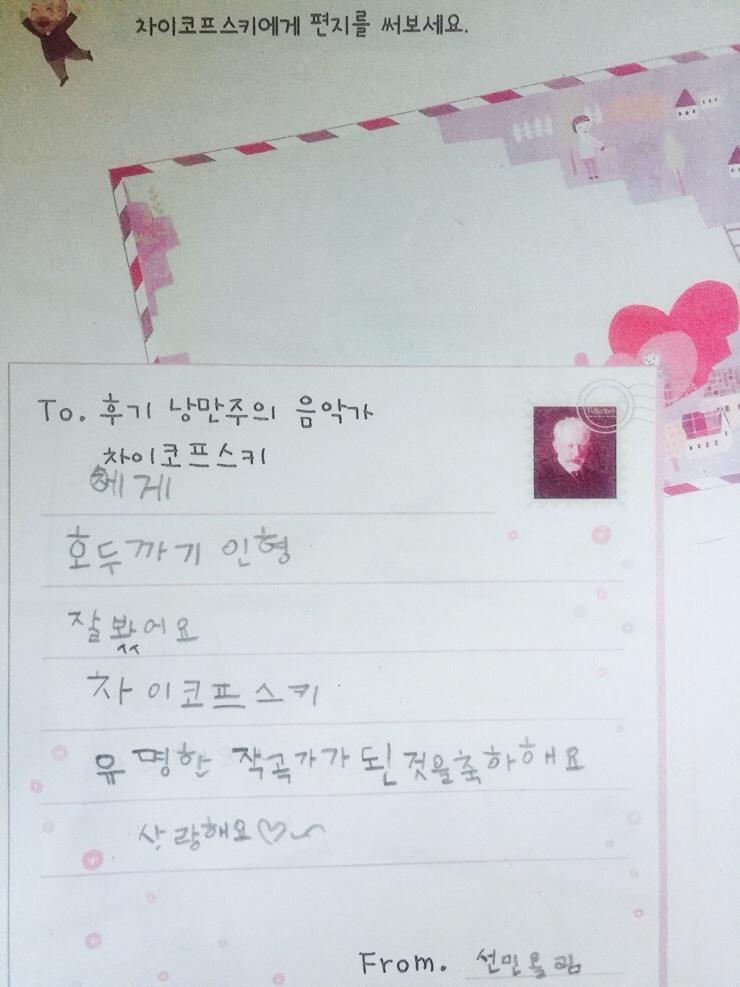 차이코프스키에게 편지를 써보세요.
To. 후기 낭만주의 음악가
차이코프스키
에게
호두까기 인형
잘봤어요
차이코프스키
유명한 작곡가가 된것을축하해요
사랑해요♡
From. 선민올림